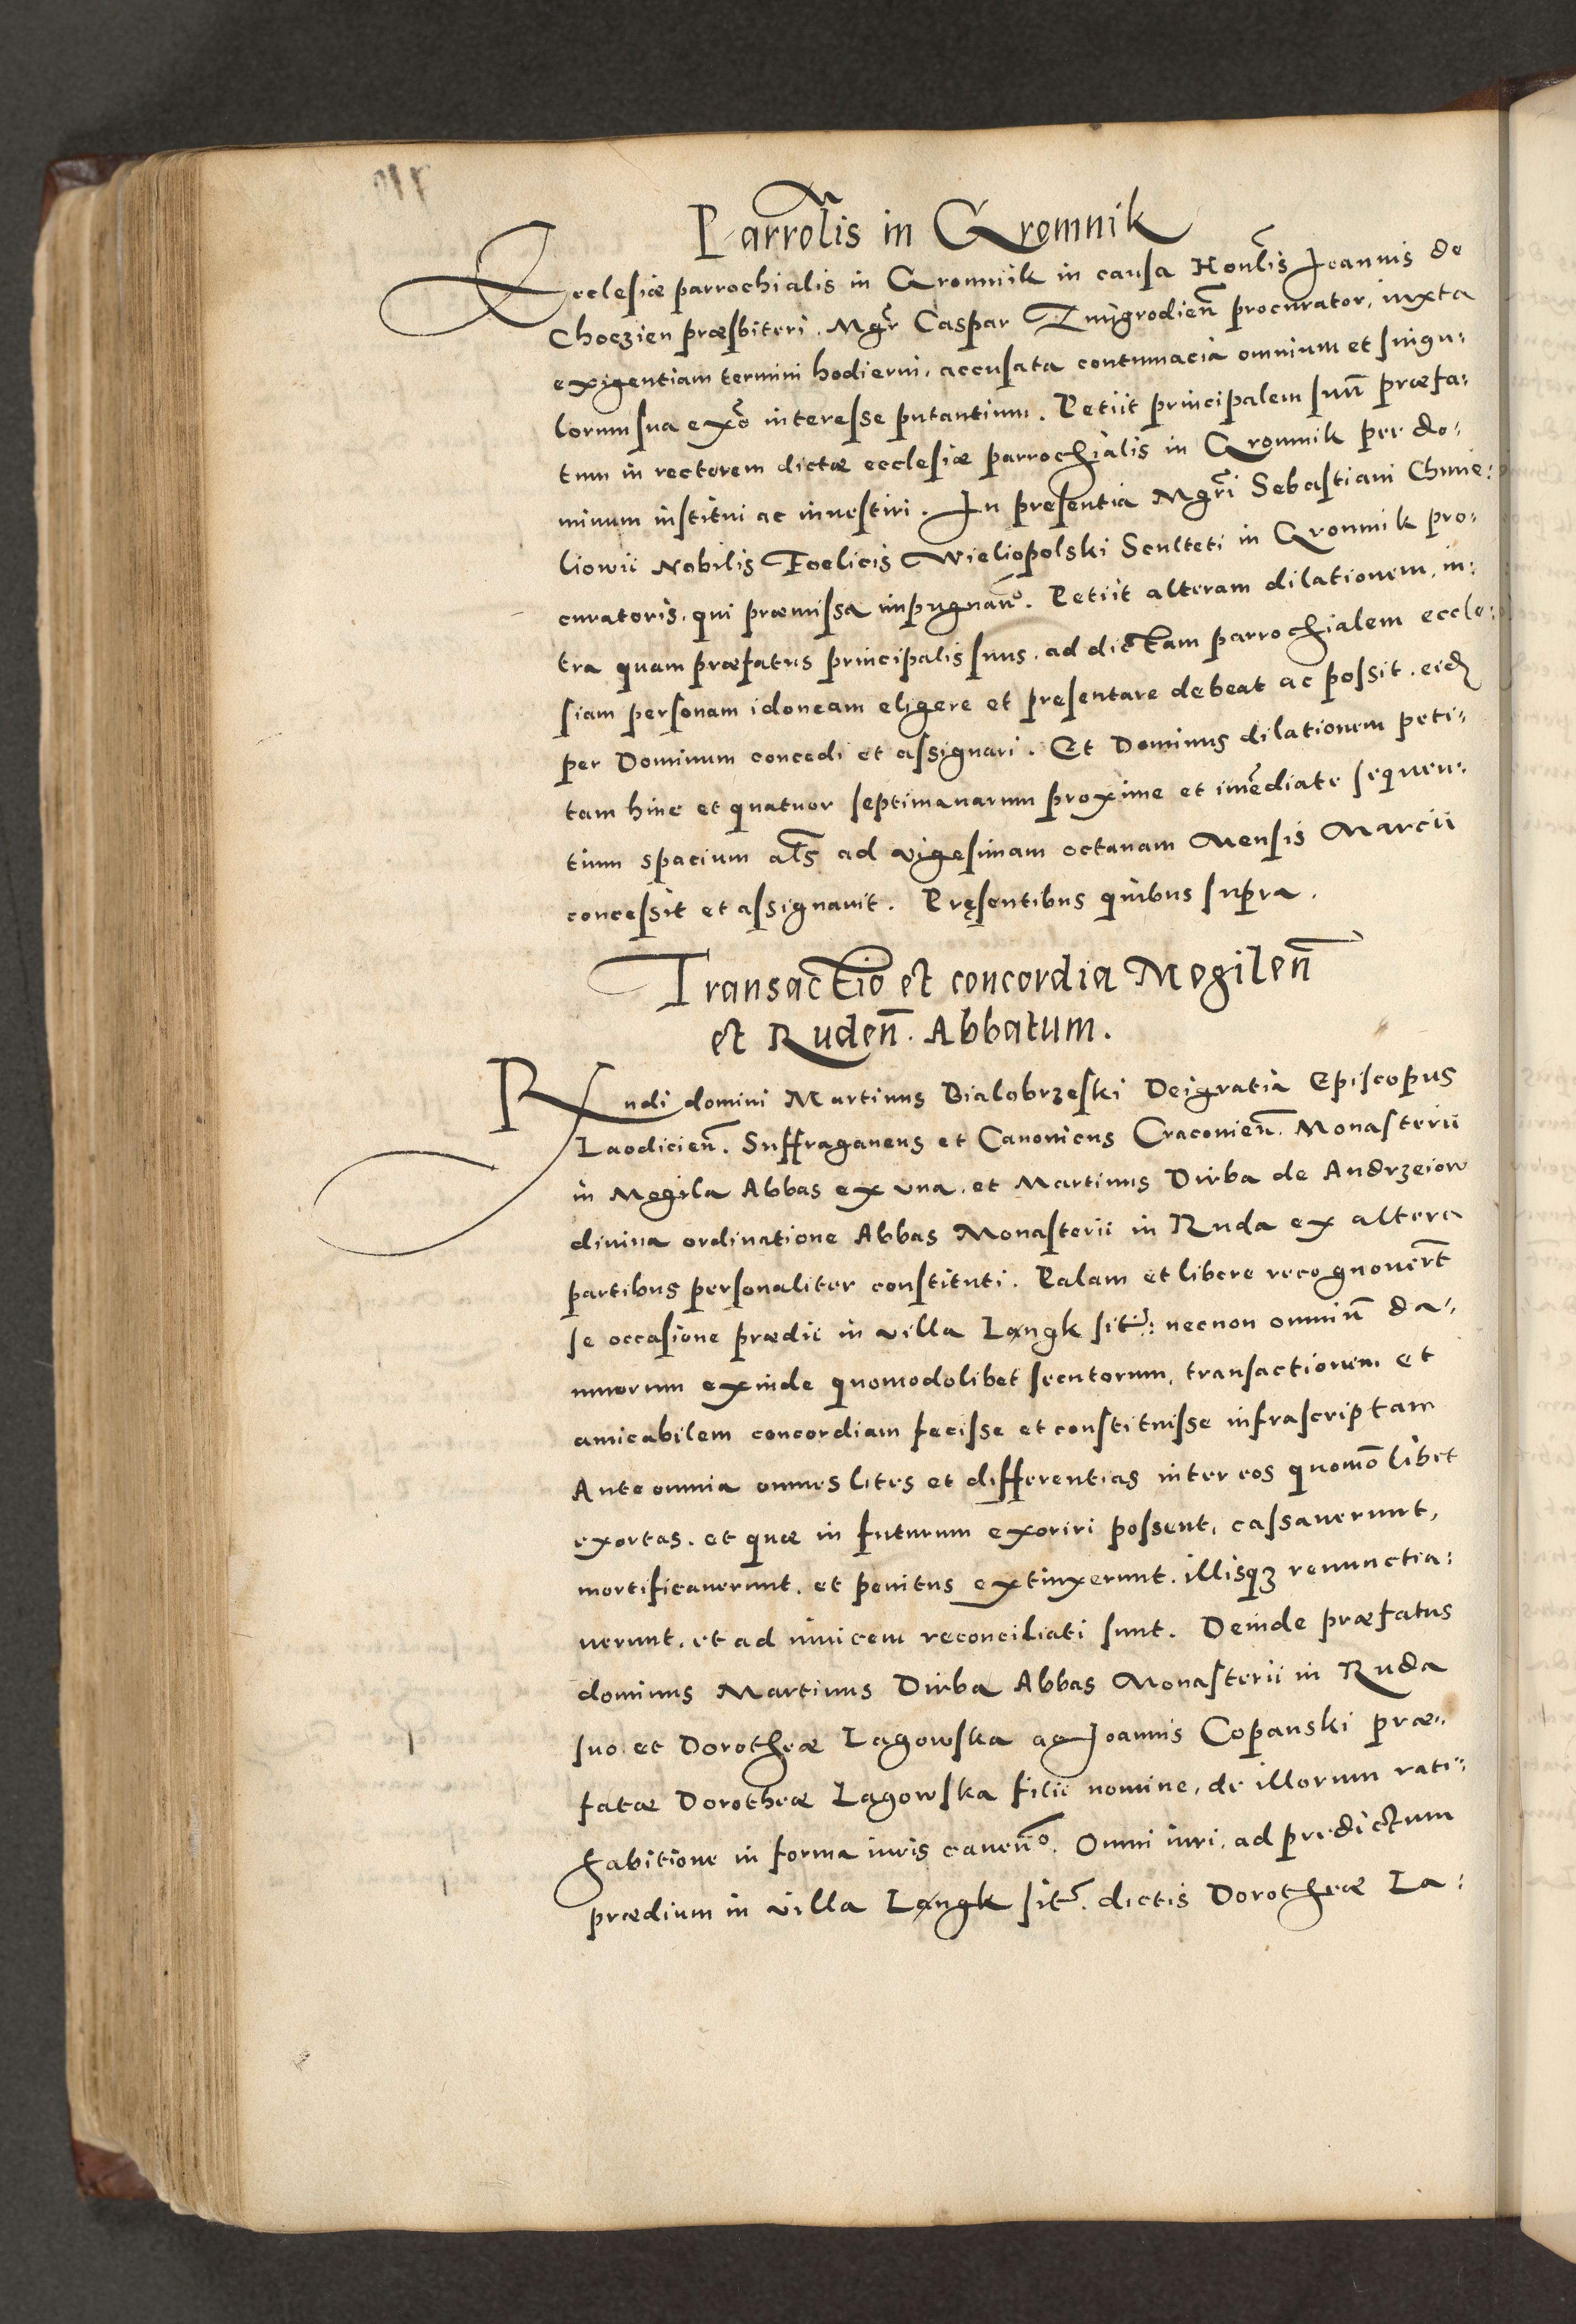 Parrolis in Gromnik
Ecclesiæ parrochialis in Gromnik in causa Honlis Joannis de
Choczien præsbiteri. Mgr Caspar Zmigrodien procurator, iuxta
exigentiam termini hodierni, accusata contumacia omnium et singu:
lorum sua exo interesse putantium. Petiit principalem suũ præfa:
tum in rectorem dictæ ecclesiæ parrochialis in Gromnik per do:
minum institui ac inuestiri. In presentia Mgri Sebastiani Chmie:
liowii Nobilis Foelicis Wieliopolski Sculteti in Gromnik pro:
curatoris, qui præmissa impugnanô. Petiit alteram dilationem, in:
tra quam præfatus principalis suus, ad dictam parrochialem eccle:
siam personam idoneam eligere et presentare debeat ac possit. eid
per Dominum concedi et assignari. Et Dominus dilationem peti:
tam hinc et quatuor septimanarum proxime et imẽdiate sequen:
tium spacium als ad vigesimam octauam Mensis Marcii
concessit et assignauit. Pręsentibus quibus supra.
Transactio et concordia Mogileñ
et Rudeñ. Abbatum.
Rndi domini Martinus Bialobrzeski Dei gratia Episcopus
Laodicieñ. Suffraganeus et Canonicus Cracouieñ. Monasterii
in Mogila Abbas ex vna, et Martinus Dirba de Andrzeiow
diuina ordinatione Abbas Monasterii in Ruda ex altera
partibus personaliter constituti. Palam et libere recognouert
se occasione prædii in villa Langk sit: necnon omniũ da:
mnorum exinde quomodolibet secutorum, transactionem et
amicabilem concordiam fecisse et constituisse infrascriptam
Ante omnia omnes lites et differentias inter eos quomõlibet
exortas. et quæ in futurum exoriri possent, cassauerunt,
mortificauerunt, et penitus extinxerunt, illisqꝫ renunctia:
uerunt, et ad inuicem reconciliati sunt. Deinde præfatus
dominus Martinus Dirba Abbas Monasterii in Ruda
suo et Dorotheæ Lagowska ac Joannis Copanski præ:
fatæ Dorotheæ Lagowska filii nomine, de illorum rati:
habitione in forma iuris cauenõ. Omni iuri, ad predictum
prædium in villa Langk sit. dictis Dorotheæ La: